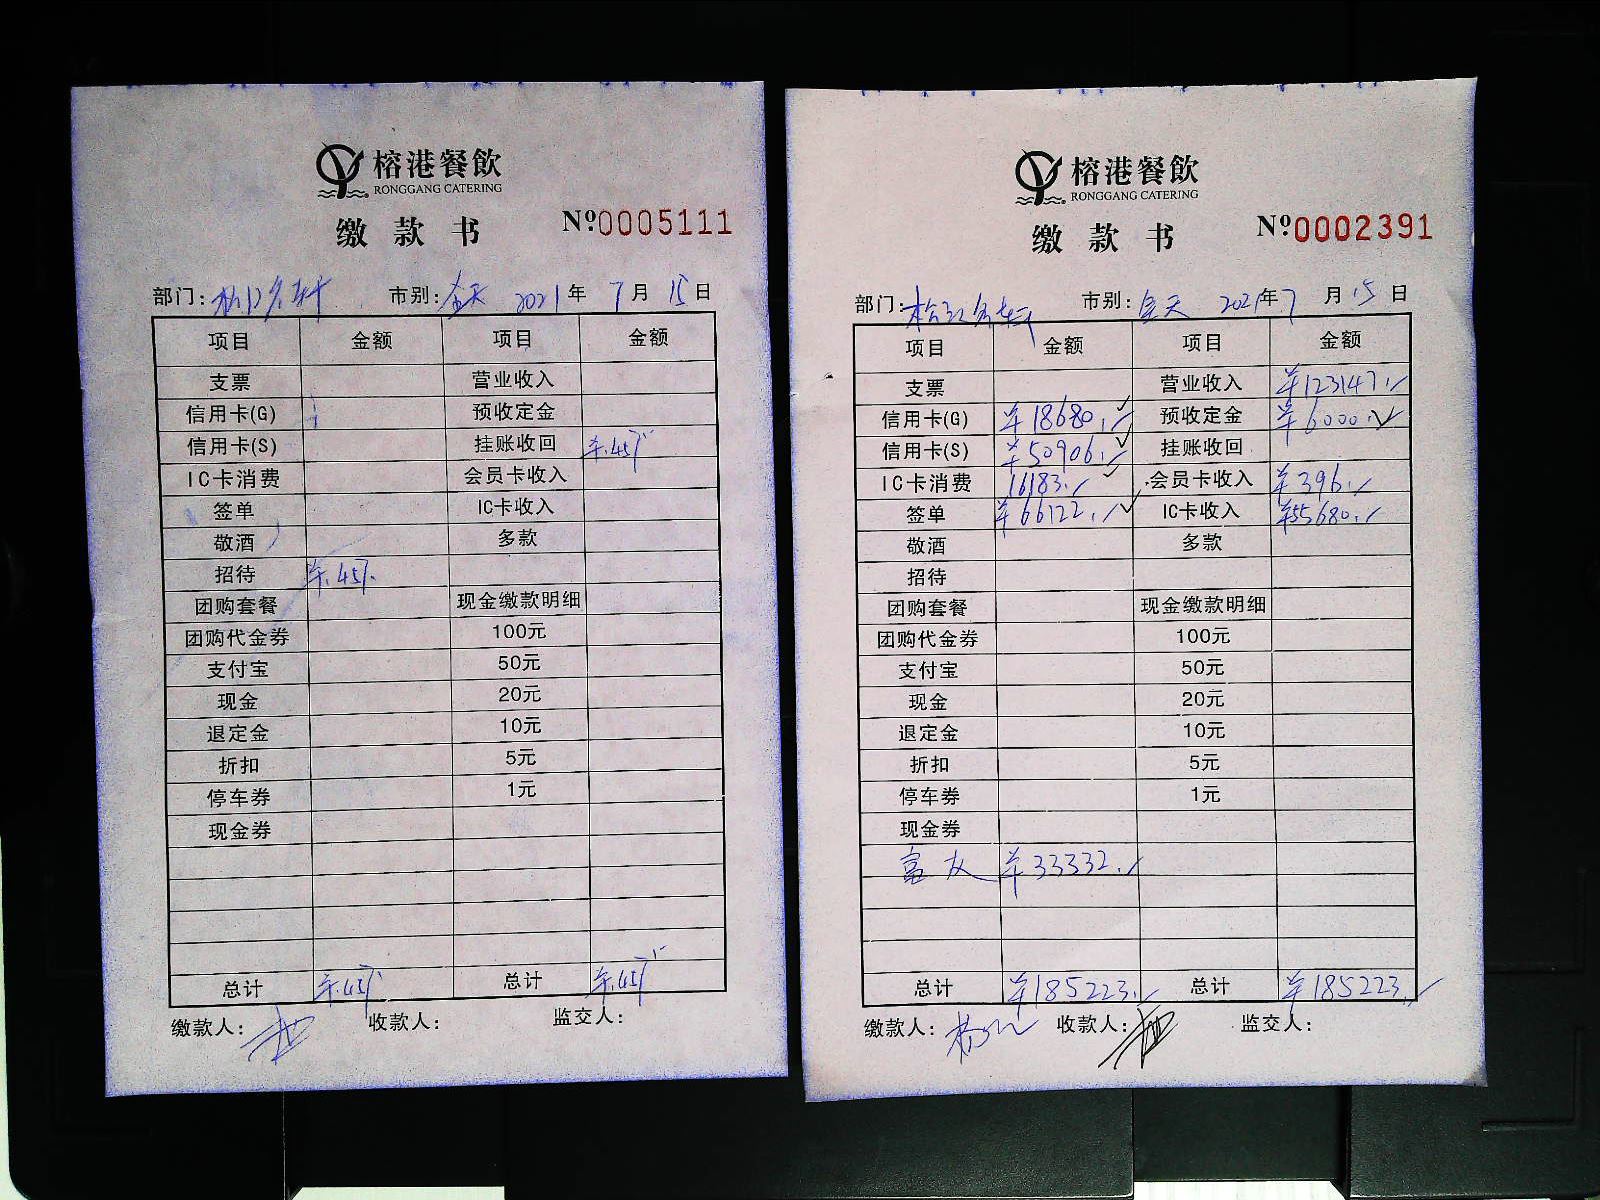 榕港餐飲
RONGGANG CATERING
缴款书 №0005111
部门: 市别:全天 2021年7月15日
项目 金额 项目 金额
支票 营业收入
信用卡(G) 预收定金
信用卡(S) 挂账收回 ¥.457
IC卡消费 会员卡收入
签单 IC卡收入
敬酒 多款
招待 ¥.457.
团购套餐 现金缴款明细
团购代金券 100元
支付宝 50元
现金 20元
退定金 10元
折扣 5元
停车券 1元
现金券
总计 ¥.457 总计 ¥.457
缴款人: 收款人: 监交人:
榕港餐飲
RONGGANG CATERING
缴款书 №0002391
部门: 市别:全天 2021年7月15日
项目 金额 项目 金额
支票 营业收入 ¥123147.
信用卡(G) ¥18680. 预收定金 ¥6000.
信用卡(S) ¥50906. 挂账收回
IC卡消费 16183. 会员卡收入 ¥396.
签单 ¥66122. IC卡收入 ¥55680.
敬酒 多款
招待
团购套餐 现金缴款明细
团购代金券 100元
支付宝 50元
现金 20元
退定金 10元
折扣 5元
停车券 1元
现金券
富友 ¥33332.
总计 ¥185223. 总计 ¥185223.
缴款人: 收款人: 监交人: